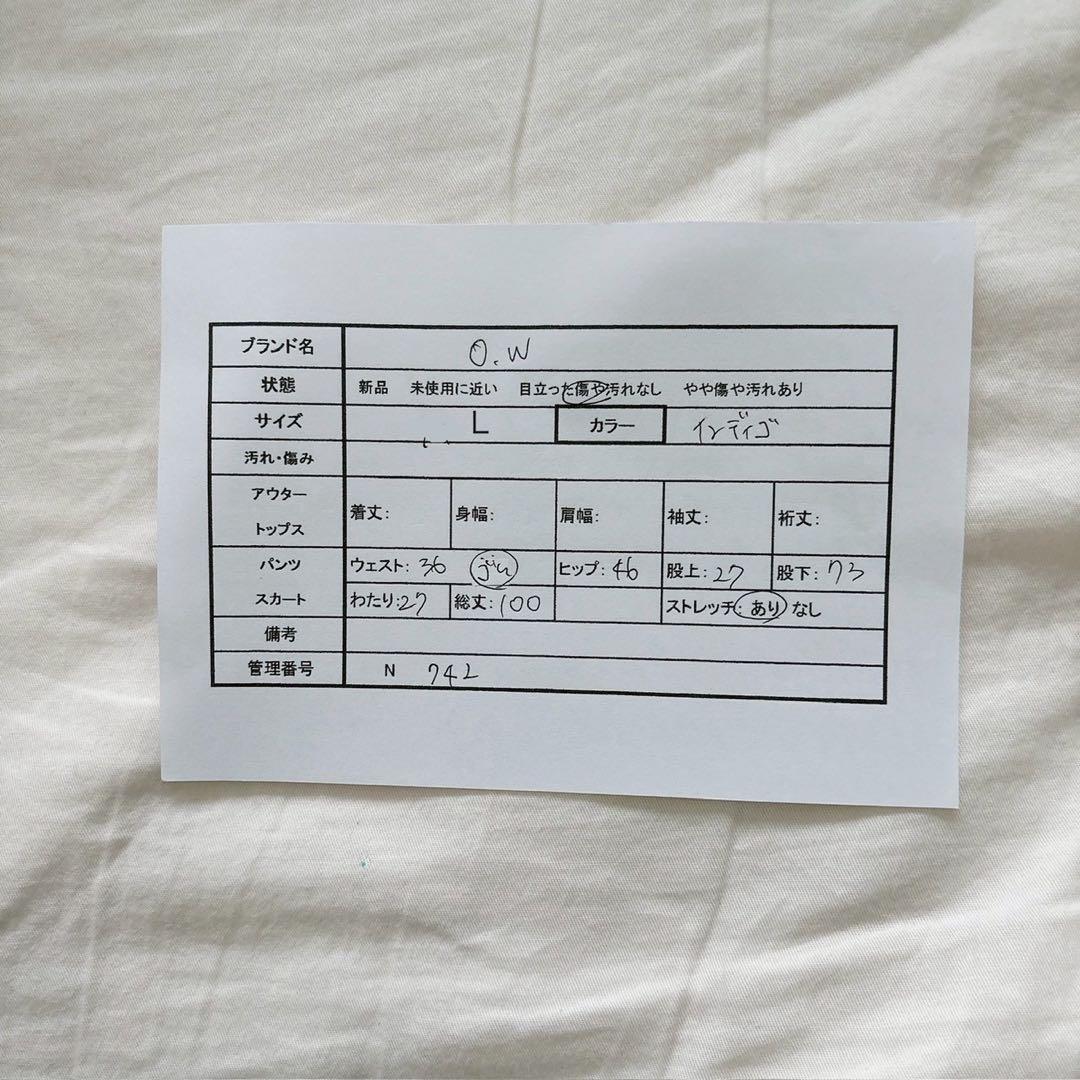 ブランド名 O.W
状態 新品 未使用に近い 目立った傷や汚れなし やや傷や汚れあり
サイズ L カラー インディゴ
汚れ・傷み
アウター
トップス
着丈: 身幅: 肩幅: 袖丈: 裄丈:
パンツ
スカート
ウェスト: 36 ヒップ: 46 股上: 27 股下: 73
わたり: 27 総丈: 100 ストレッチ: あり なし
備考
管理番号 N 742